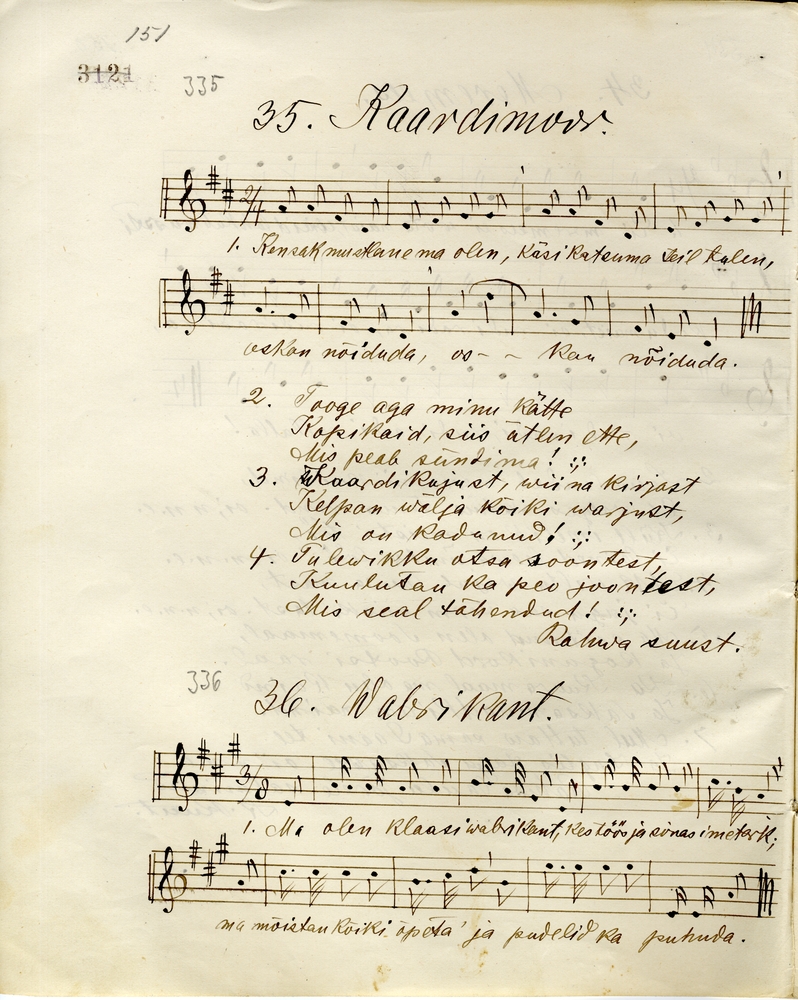 151
3121
335
35. Kaardimoor.
2/4
1. Kensakmuslane ma olen, käsi katsuma teil tulen,
oskan nõiduda, os- - kan nõiduda.
2. Tooge aga minu kätte
Kopikaid, siis ütlen ette,
Mis peab sündima! :;:
3. Kaardikujust, wiina kirjast
Kelpan wälja kõiki warjust,
Mis on kadunud! :;:
4. Tulewikku otsa soontest,
Kuulutan ka peo joontest,
Mis seal tähendud! :;:
Rahwa suust.
336
36. Wabrikant.
3/8
1. Ma olen klaasiwabrikant, kes töös ja sõnas imetark;
ma mõistan kõiki õpeta' ja pudelid ka puhuda.